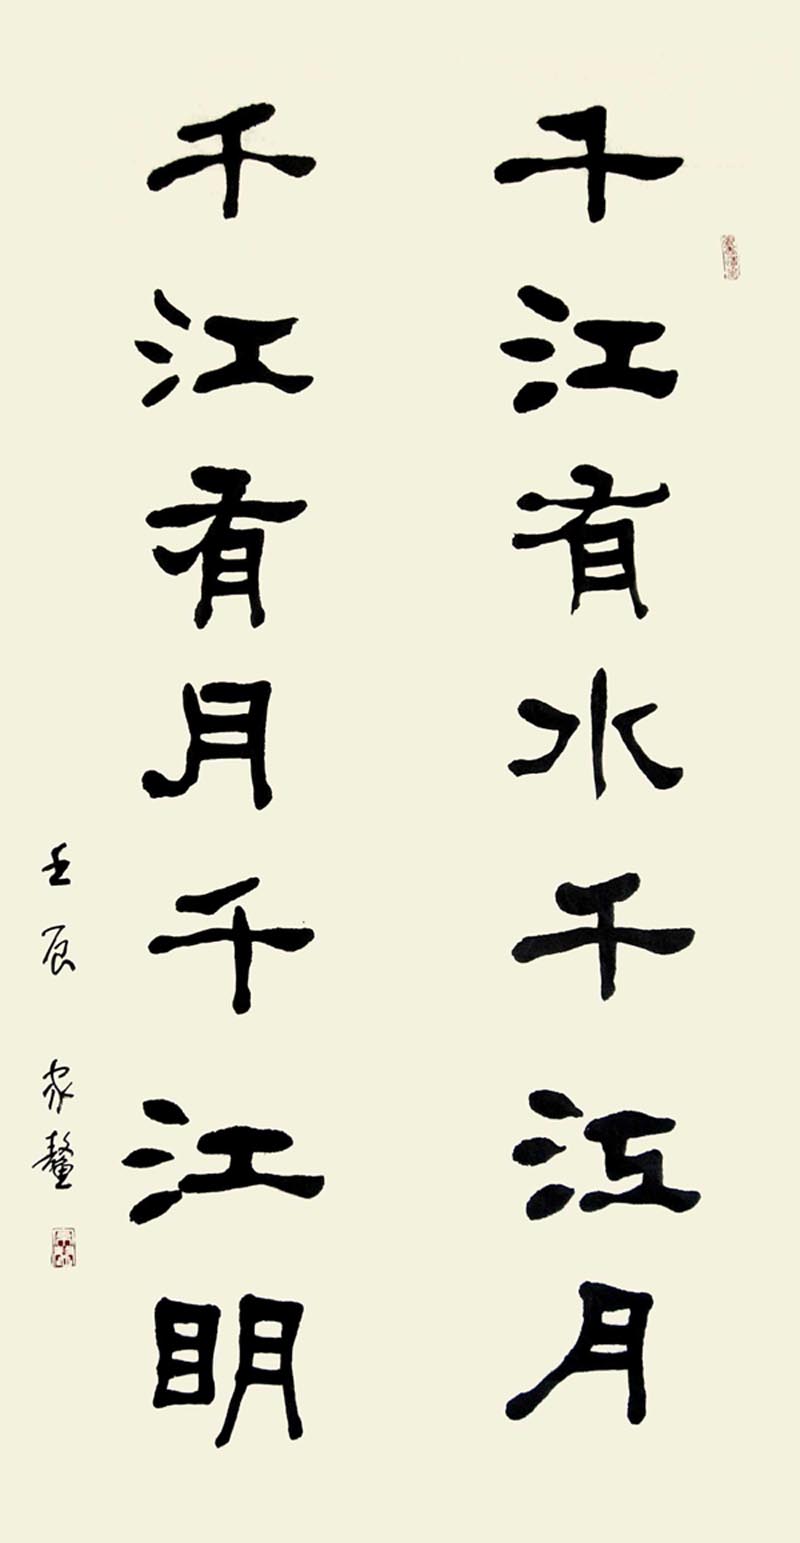 千江有水千江月
千江有月千江明
壬辰 家鳌